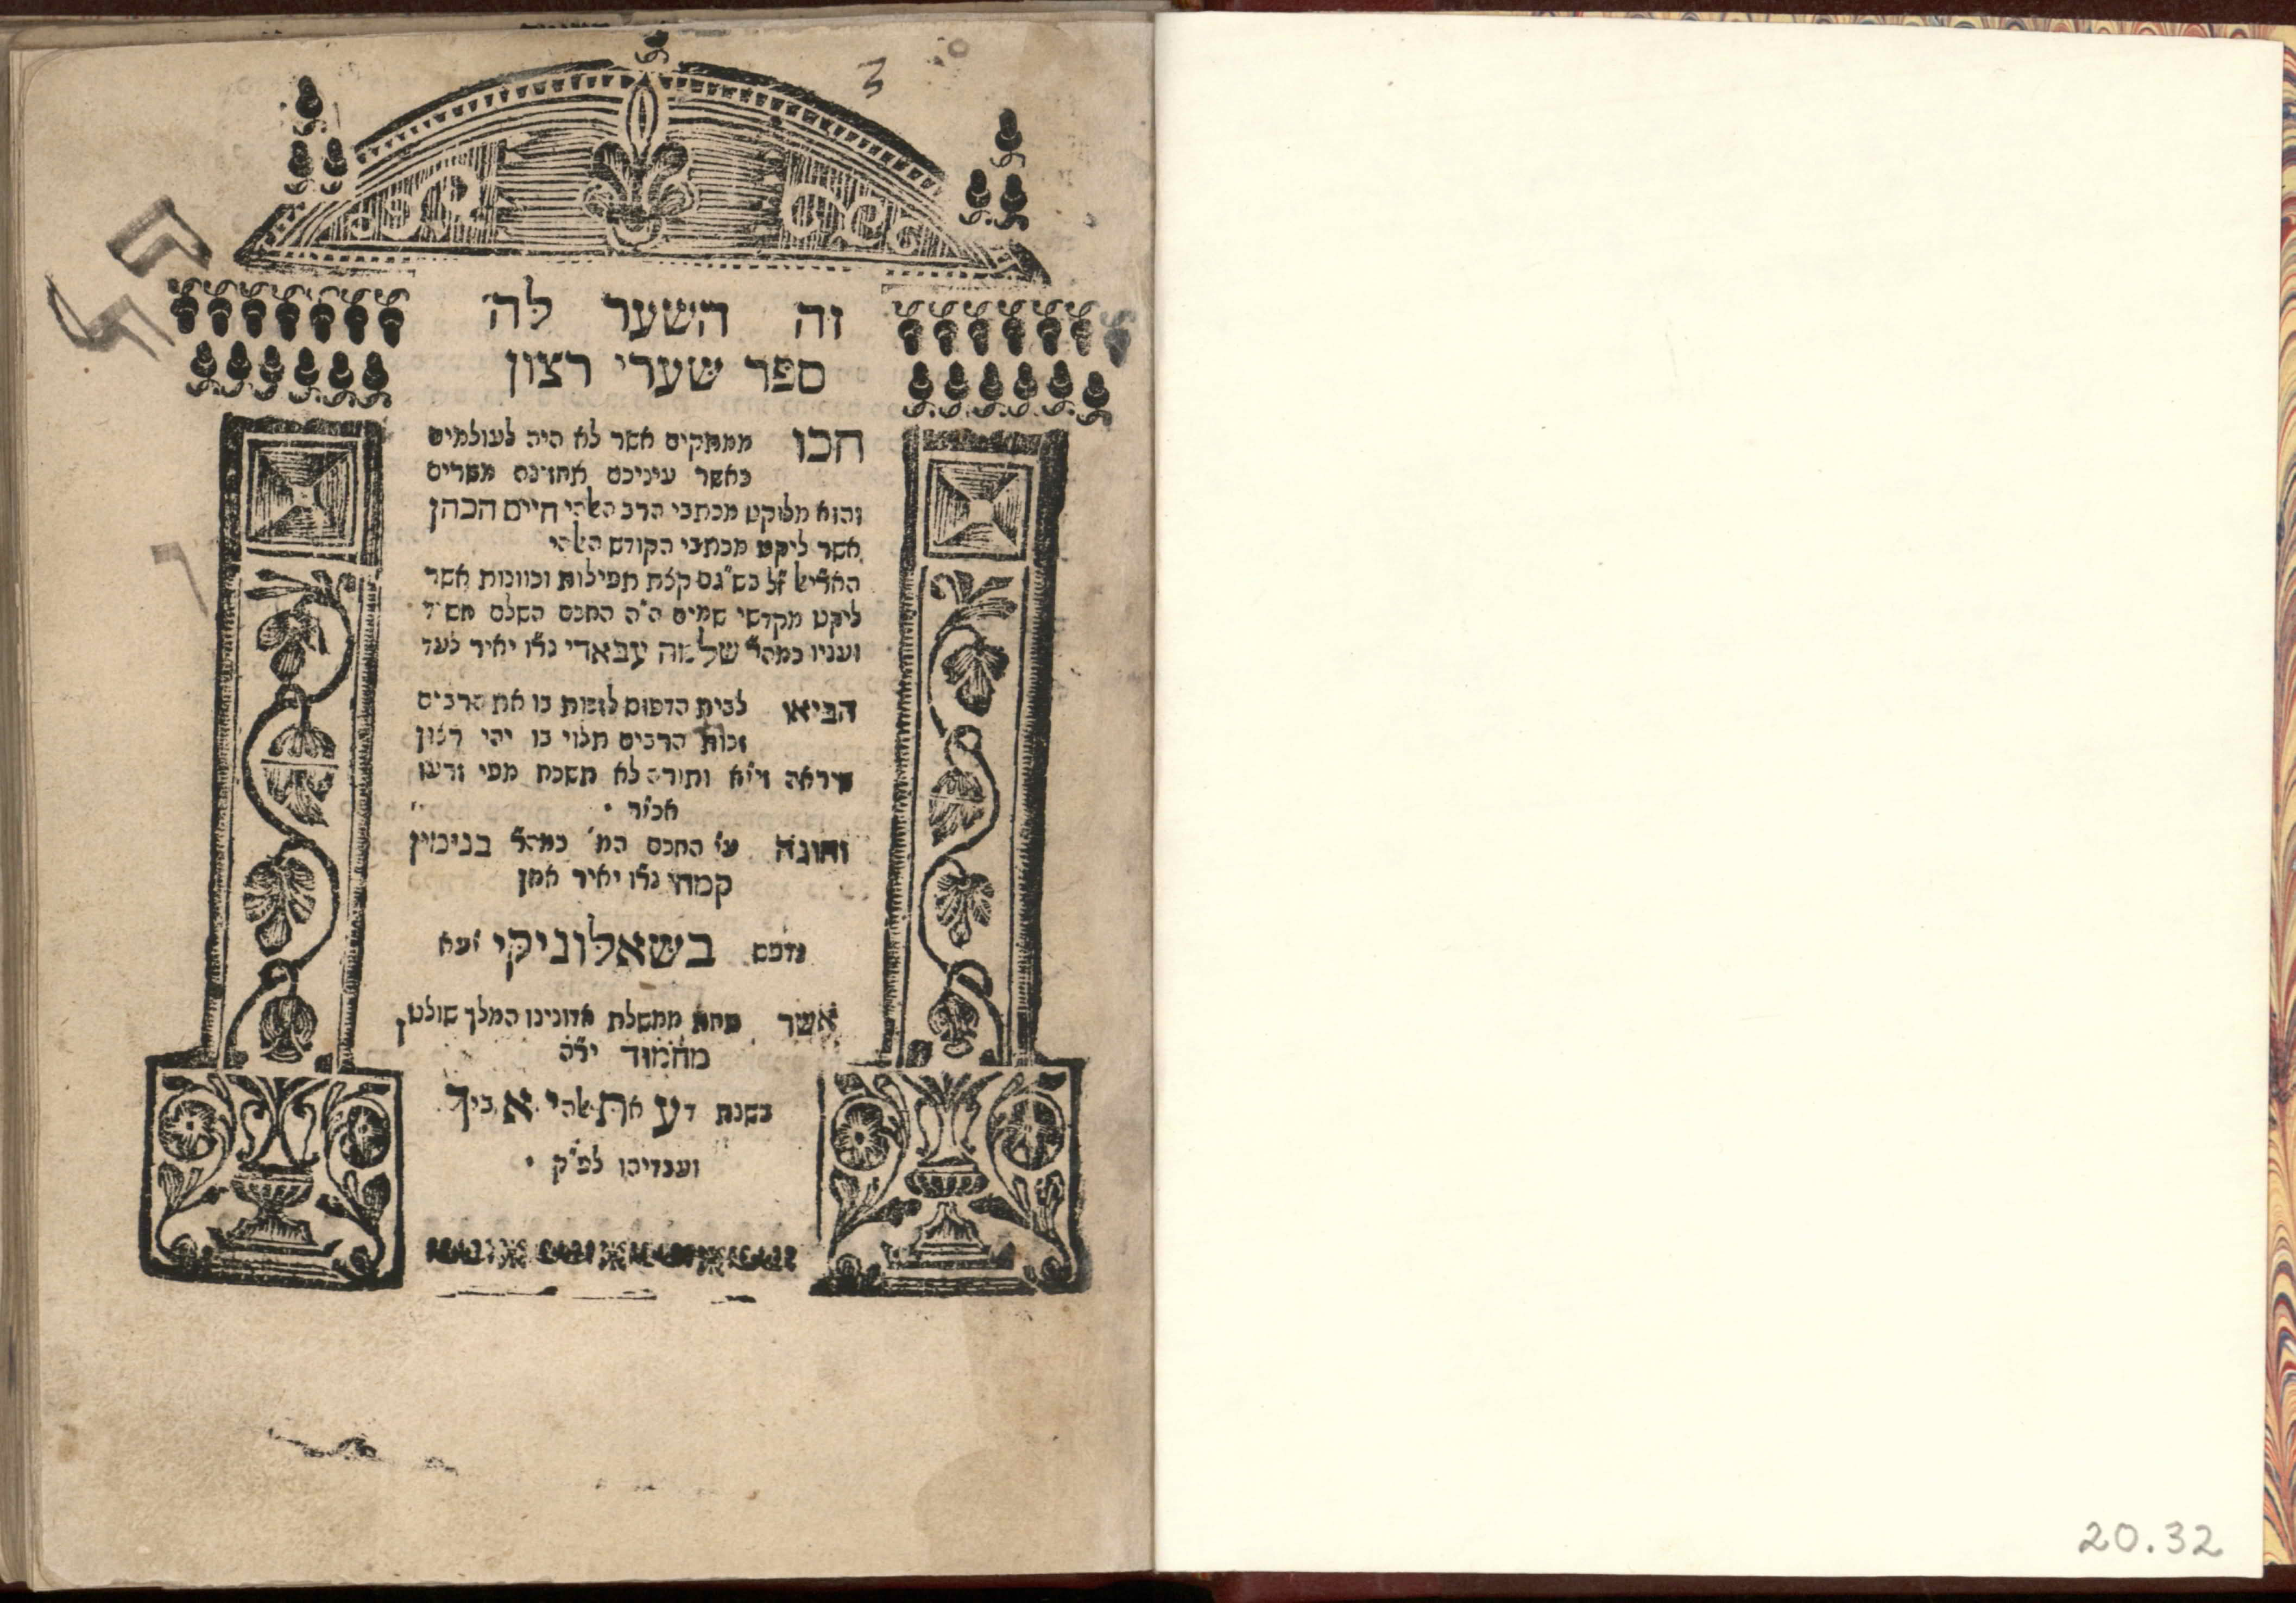 זה השער לה׳
ספר שערי רצון
חכו ממתקים אשר לא היה לעולמים
כאשר עיניכם תחזינה משרים
והוא מלוקט מכתבי הרב האלהי חיים הכהן
אשר ליקט מכתבי הקודש האלהי
האר״י זל קצת תפילות וכוונות אשר
ליקט מקדשי שמים ה״ה החכם השלם
ועניו כמהר״ שלמה עבאדי נר״ו יאיר לעד
הביאו לבית הדפוס לזכות בו את הרבים
זכות הרבים תלוי בו יהי רצון
שיראה ותורה לא תשכח מפי זרעו
אכי״ר
והוגה ע״י החכם המ׳ כמהר״ בנימין
קמחי נר״ו יאיר אמן
נדפס בשאלוניקי יע״א
אשר תחת ממשלת אדונינו המלך שולטן
מחמוד יר״ה
בשנת דע את אלהי אביך
ועבדיהו לפ״ק
3
20.32